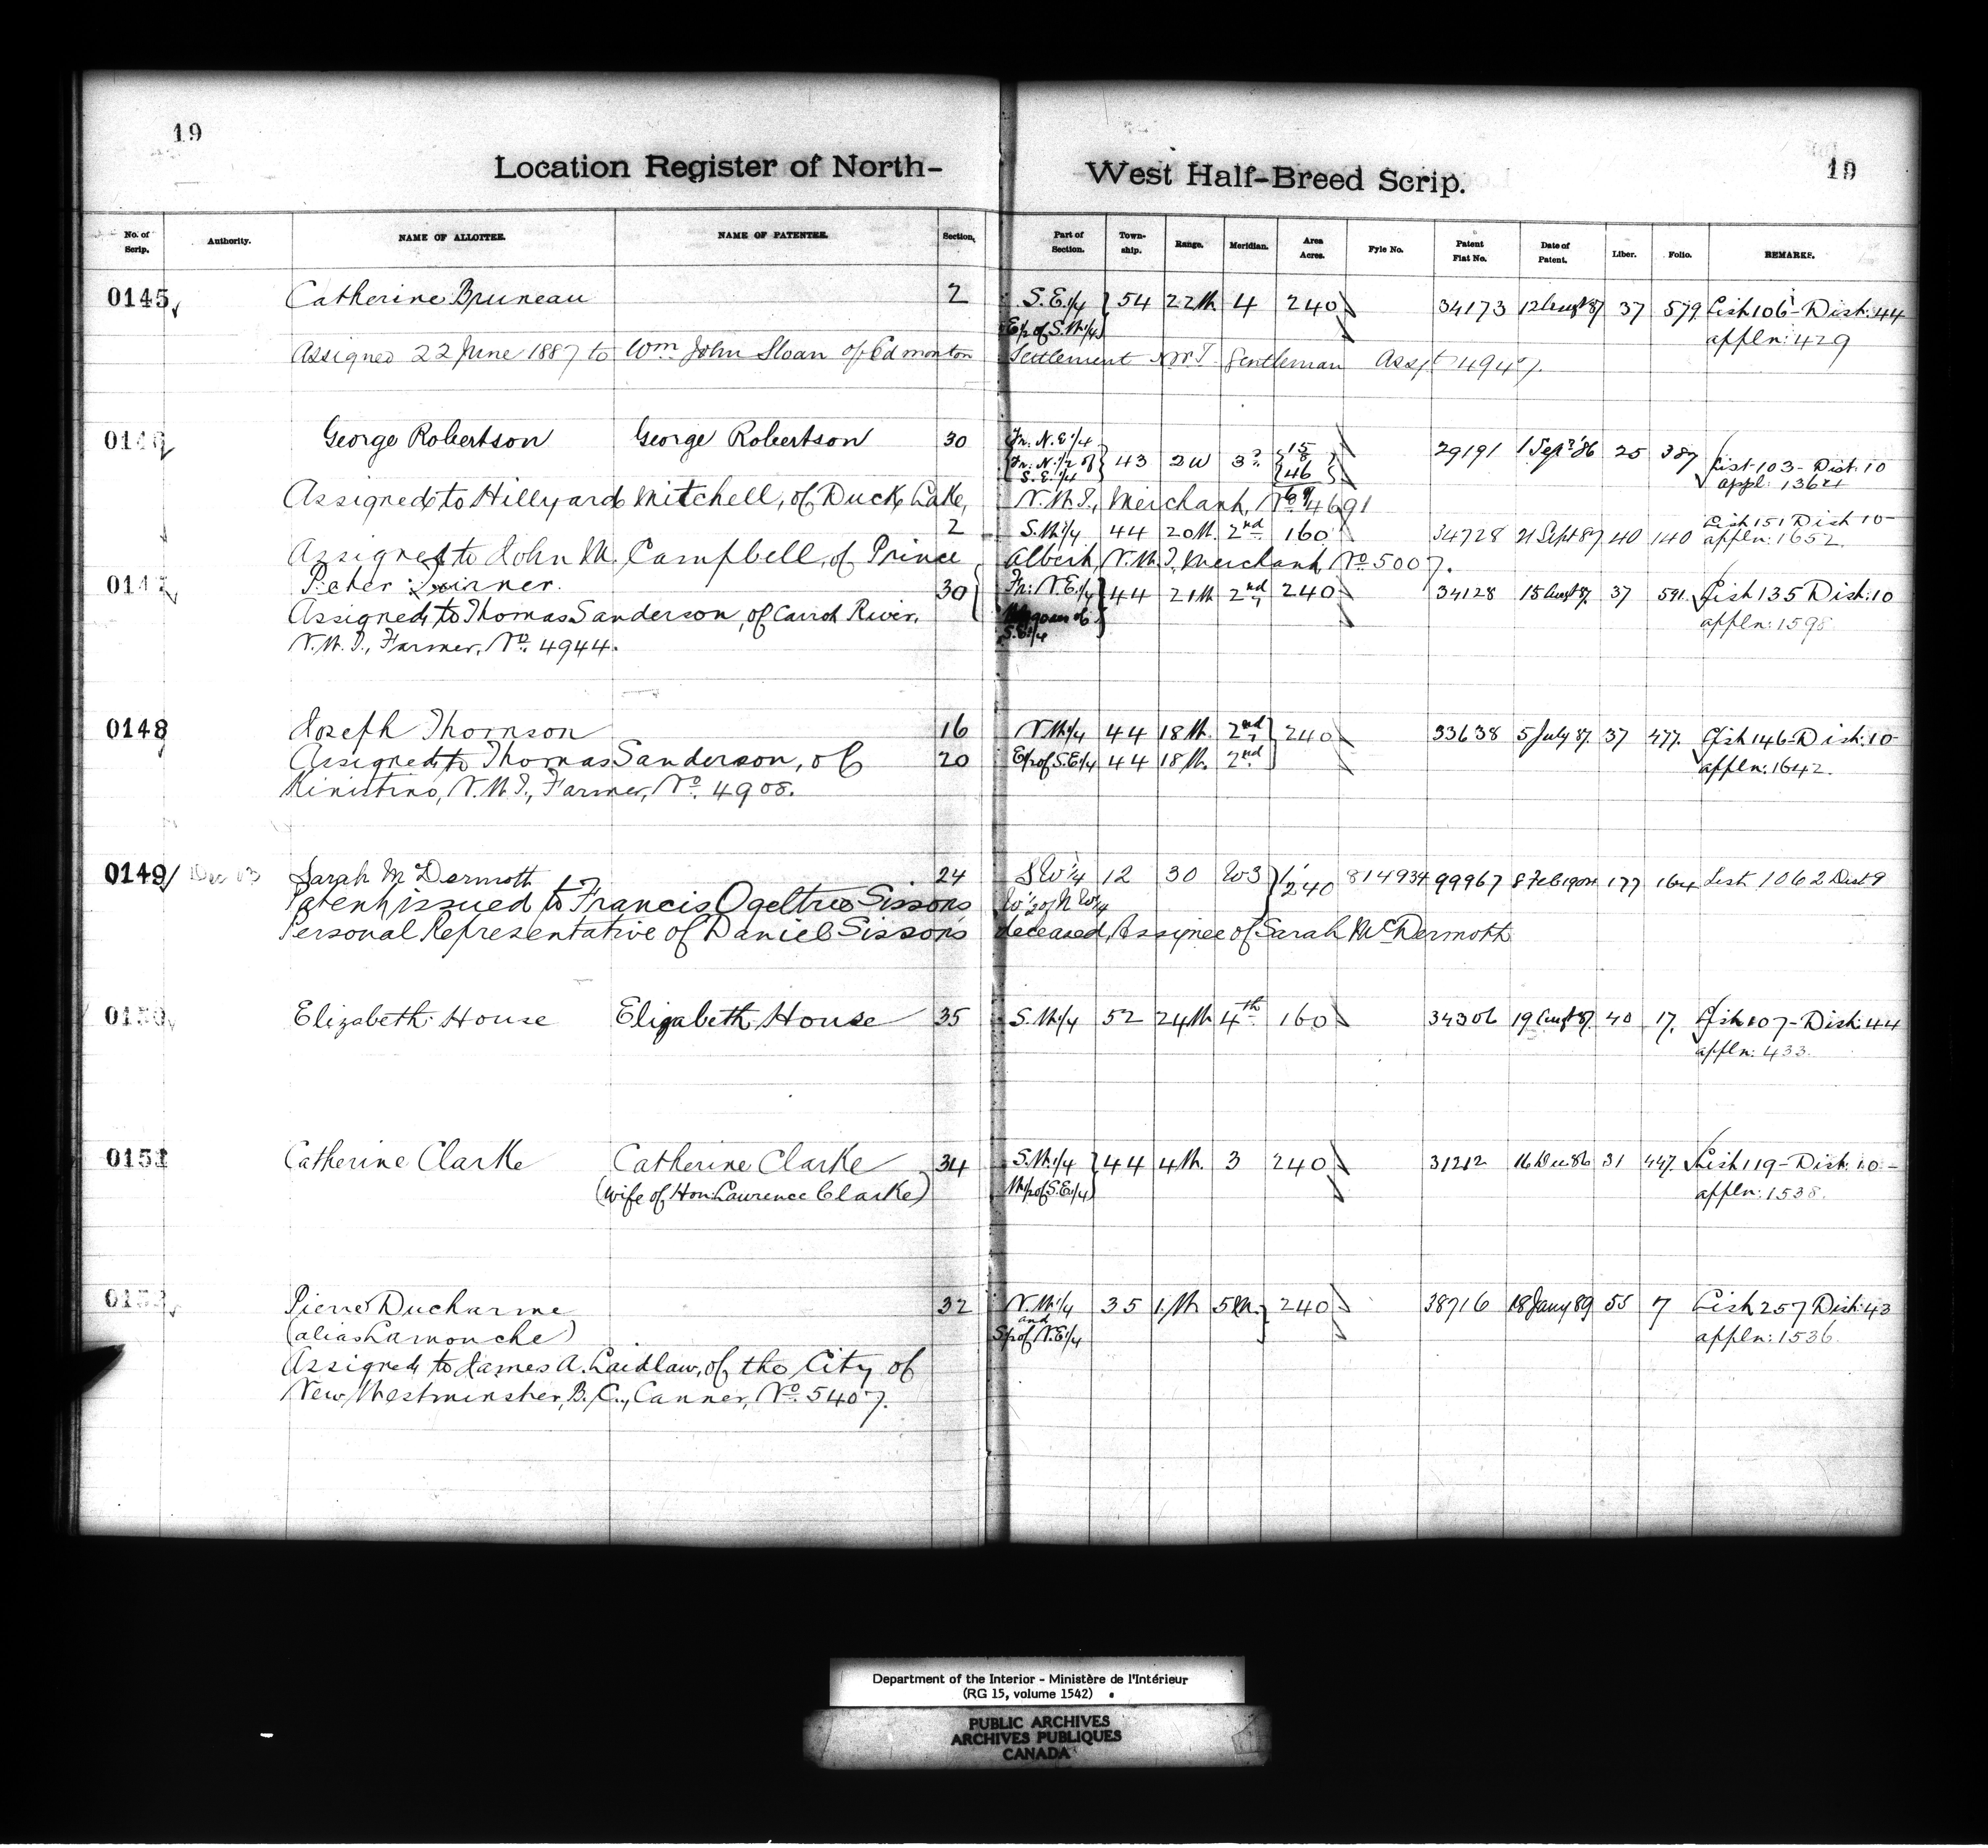 19
19
Location Register of North-West Half-Breed Scrip.
No. of Scrip. Authority. NAME OF ALLOTTEE. NAME OF PATENTEE. Section. Part of Section. Town-ship. Range. Meridian. Area Acres. Fyle No. Patent Fiat No. Date of Patent. Liber. Folio. REMARKS.
0145 Catherine Bruneau 2 S.E.1/4 54 22W. 4 240 34173 12 Augt 87 37 579 List 106 - Dist. 44
E1/2 of S.W.1/4 appln: 429
Assigned 22 June 1887 to Wm John Sloan of Edmonton Settlement N.W.T. Gentleman Asst 4947.
0146 George Robertson George Robertson 30 Fr. N.E.1/4 43 2W 3 15 29191 1 Sept '86 25 387 List 103 - Dist. 10
Fr. N.1/2 of S.E.1/4 46 appl: 1364
Assigned to Hillyard Mitchell, of Duck Lake, N.W.T., Merchant, No. 4691
2 S.W.1/4 44 20W. 2nd 160 34728 21 Sept 87 40 140 List 151 Dist 10 -
appln: 1652.
Assigned to John M. Campbell, of Prince Albert, N.W.T., Merchant No. 5007.
0147 Peter Turner. 30 Fr: N.E.1/4 44 21W 2nd 240 34128 15 Augt 87. 37 591 List 135 Dist. 10
S.E.1/4 appln: 1598
Assigned to Thomas Sanderson, of Carrot River,
N.W.T., Farmer, No. 4944.
0148 Joseph Thomson 16 N.W.1/4 44 18W. 2nd 240 33638 5 July 87. 37 477. List 146 - Dist. 10
Assigned to Thomas Sanderson, of 20 E1/2 of S.E.1/4 44 18W. 2nd appln: 1642.
Kinistino, N.W.T., Farmer, No. 4908.
0149 Dec 03 Sarah McDermott 24 SW1/4 12 30 W3 240 814934 99967 8 Feb 1904 177 164 List 1062 Dist 9
W1/2 of NW1/4
Patent issued to Francis Ogeltree Sissons
Personal Representative of Daniel Sissons deceased, Assignee of Sarah McDermott
0150 Elizabeth House Elizabeth House 35 S.W.1/4 52 24W 4th 160 34306 19 Augt 87. 40 17. List 107 - Dist. 44
appln: 433.
0151 Catherine Clarke Catherine Clarke 34 S.W.1/4 44 4W. 3 240 31212 16 Dec 86 31 447. List 119 - Dist. 10 -
(wife of Hon Laurence Clarke) W1/2 of S.E.1/4 appln: 1538.
Pierre Ducharme 32 N.W.1/4 35 1.W. 5th. 240 38716 18 Jany 89 55 7 List 257 Dist. 43
(alias Lamouche) and S1/2 of N.E.1/4 appln: 1536.
Assigned to James A. Laidlaw, of the City of
New Westminster, B.C., Canner, No. 5407.
Department of the Interior - Ministère de l'Intérieur
(RG 15, volume 1542)
PUBLIC ARCHIVES
ARCHIVES PUBLIQUES
CANADA